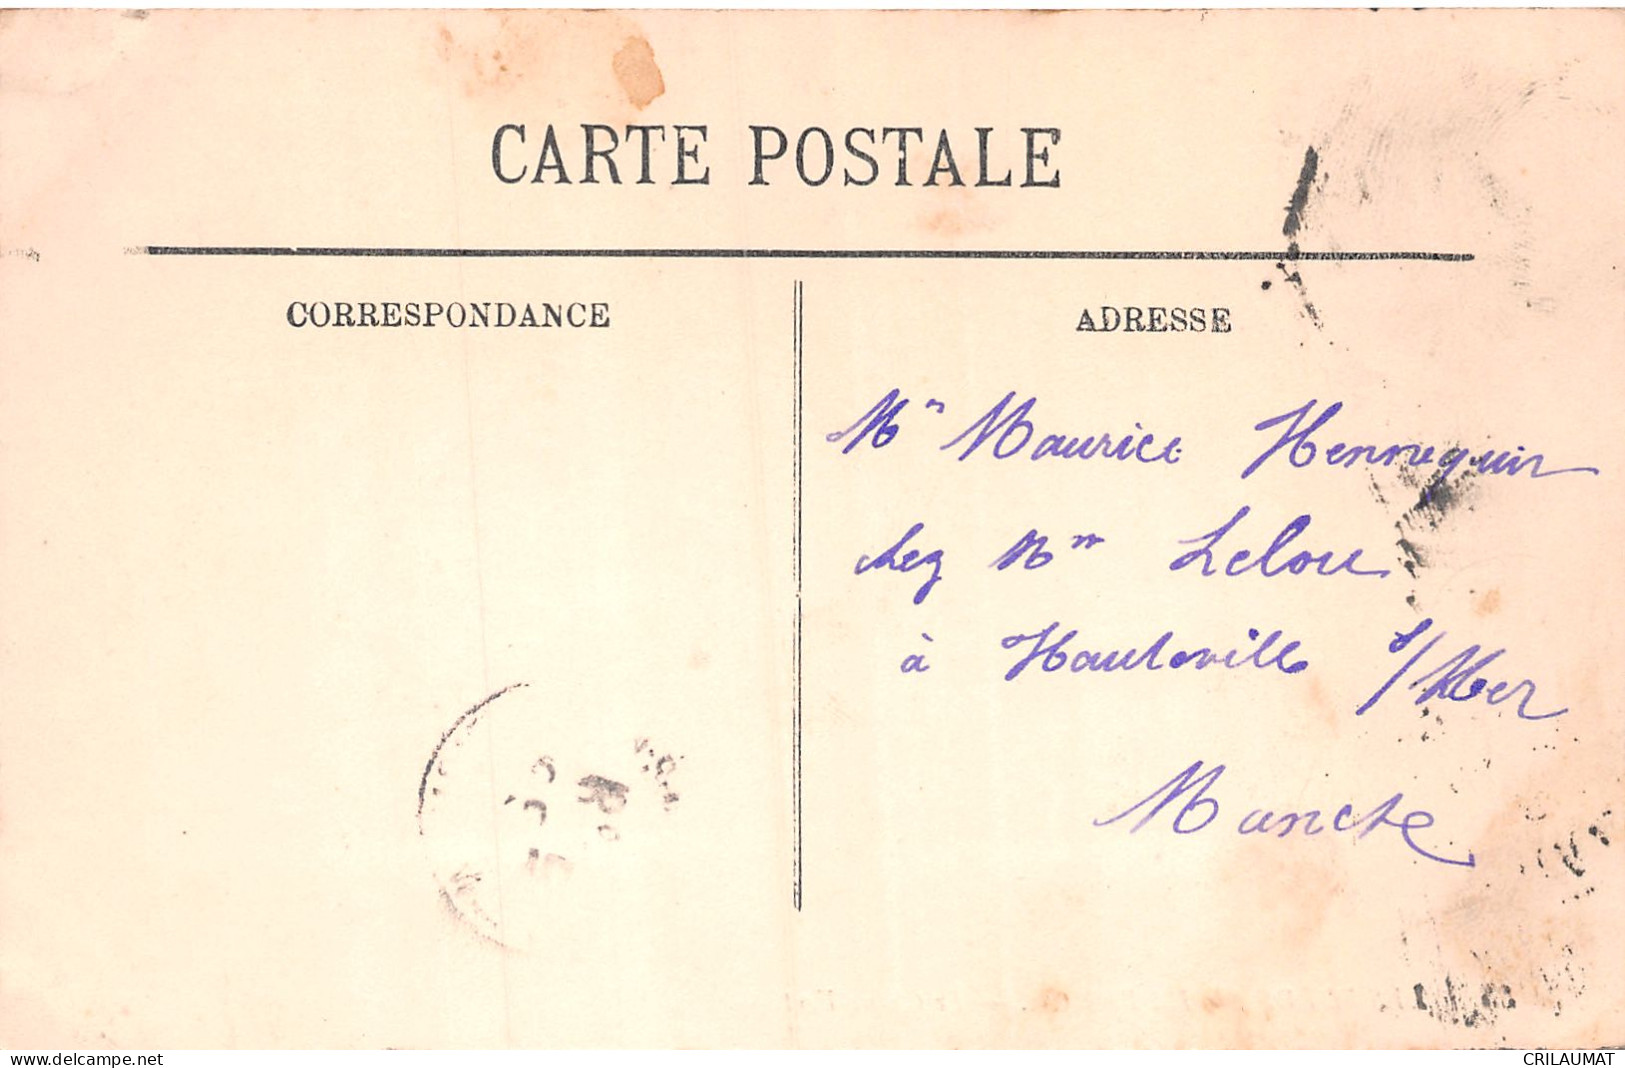 CARTE POSTALE
CORRESPONDANCE
ADRESSE
Mr Maurice Hennequin
chez Mr Lelou
à Hauteville s/Mer
Manche
www.delcampe.net
CRILAUMAT